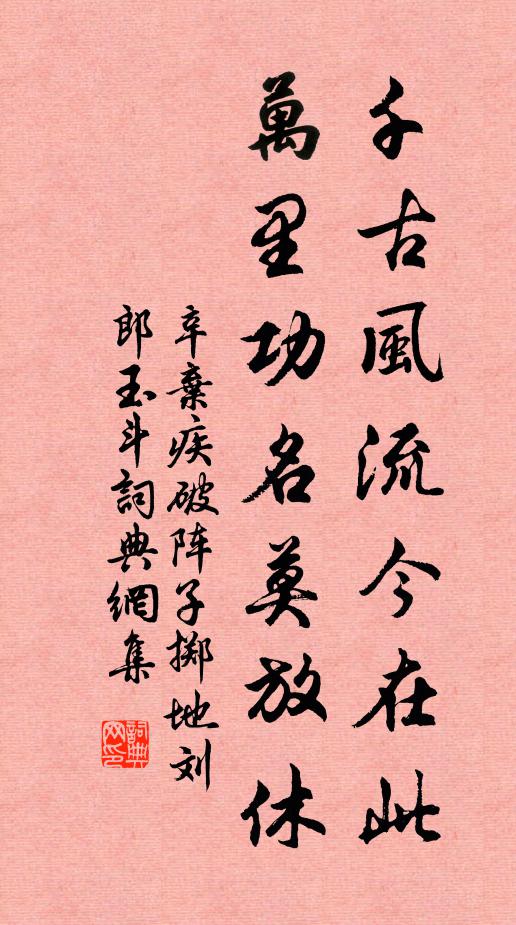 千古風流今在此
萬里功名莫放休
辛棄疾破阵子掷地刘
郎玉斗詞典網集
詞典
网印